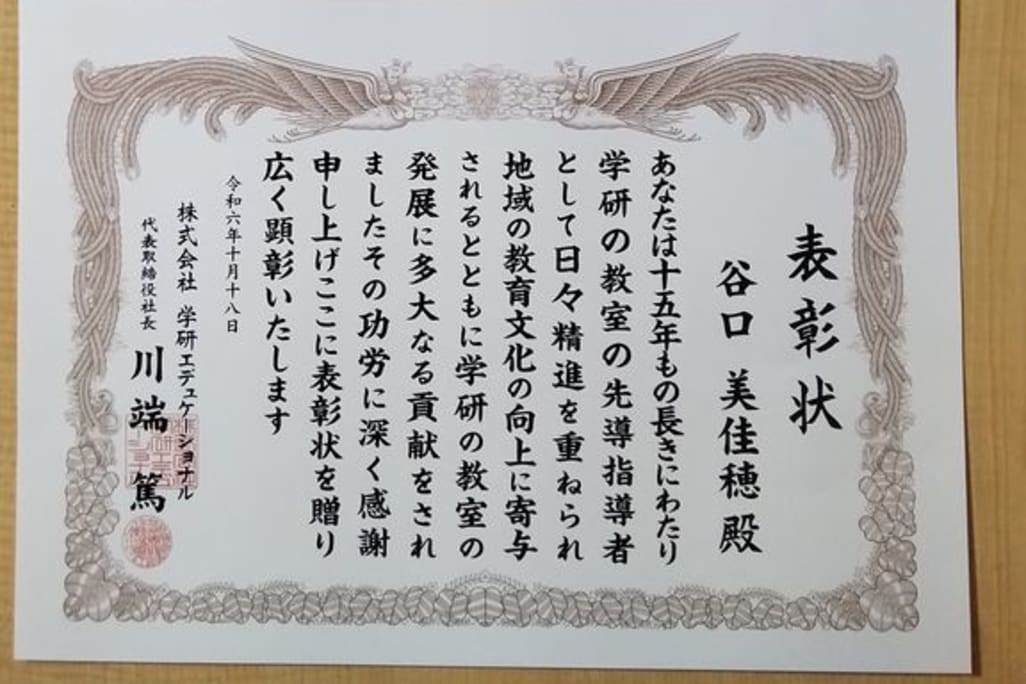 表彰状
谷口 美佳穂 殿
あなたは十五年もの長きにわたり
学研の教室の先導指導者
として日々精進を重ねられ
地域の教育文化の向上に寄与
されるとともに学研の教室の
発展に多大なる貢献をされ
ましたその功労に深く感謝
申し上げここに表彰状を贈り
広く顕彰いたします
令和六年十月十八日
株式会社 学研エデュケーショナル
代表取締役社長 川端 篤